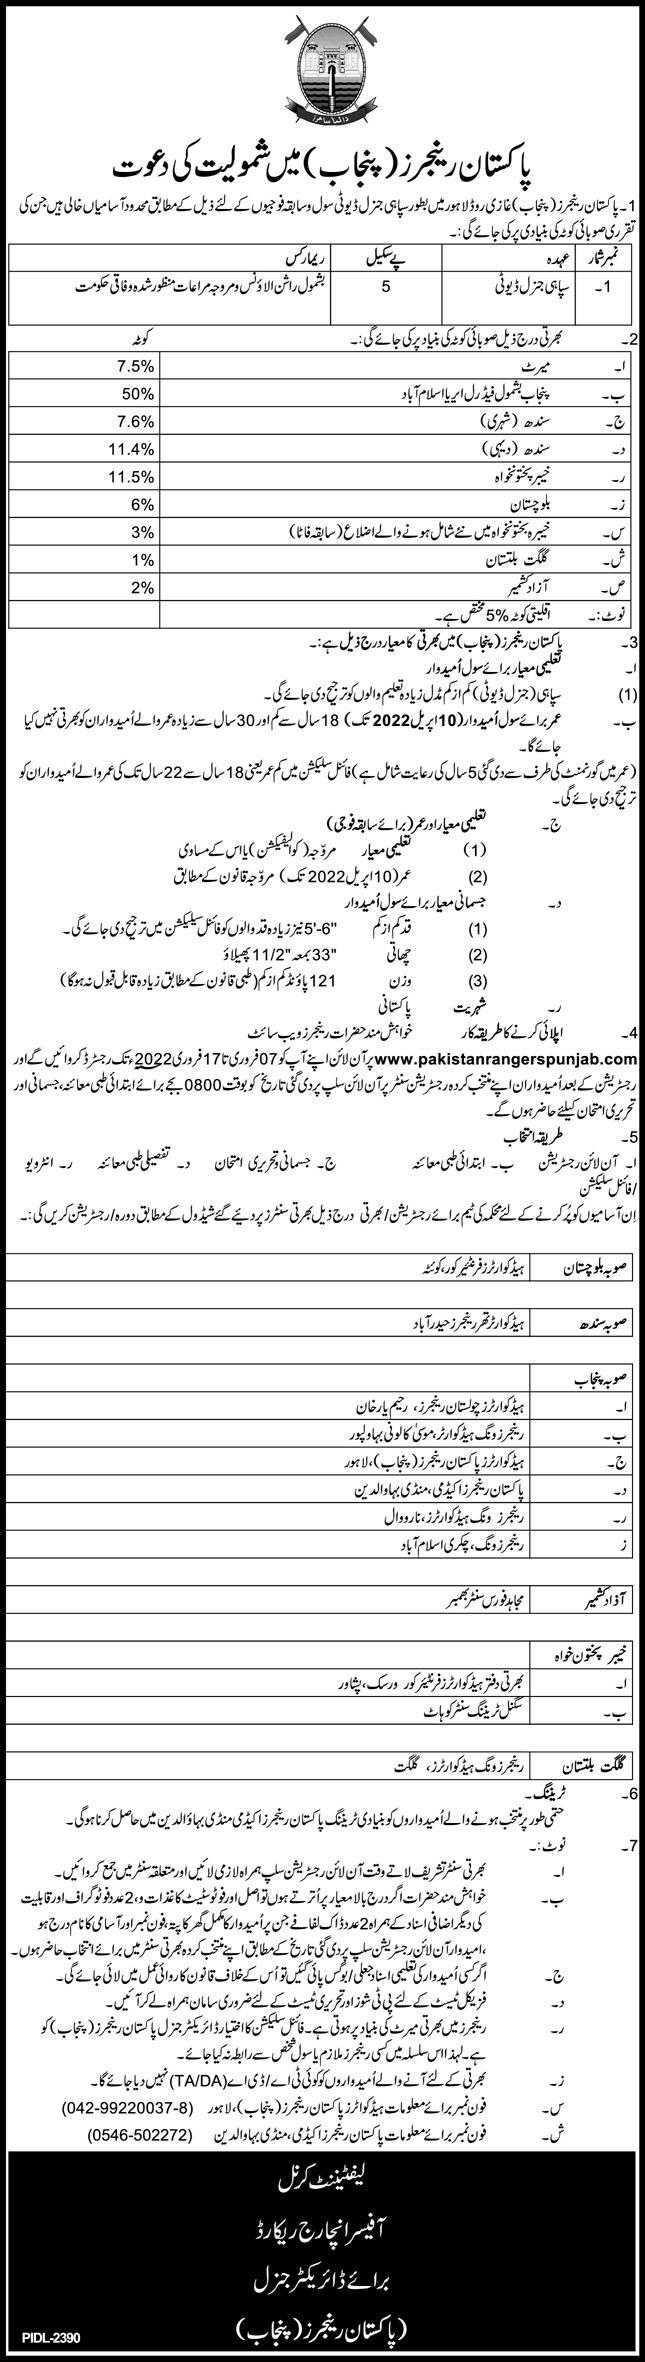 پاکستان رینجرز (پنجاب) میں شمولیت کی دعوت
1۔ پاکستان رینجرز (پنجاب) غازی روڈ لاہور میں بطور سپاہی جنرل ڈیوٹی سول و سابقہ فوجیوں کے لئے ذیل کے مطابق محدود آسامیاں خالی ہیں جن کی
تقرری صوبائی کوٹہ کی بنیاد پر کی جائے گی:۔
نمبر شمار عہدہ پے سکیل ریمارکس
1۔ سپاہی جنرل ڈیوٹی 5 بشمول راشن الاؤنس و مروجہ مراعات منظور شدہ وفاقی حکومت
2۔ بھرتی درج ذیل صوبائی کوٹہ کی بنیاد پر کی جائے گی:۔ کوٹہ
ا۔ میرٹ 7.5%
ب۔ پنجاب بشمول فیڈرل ایریا اسلام آباد 50%
ج۔ سندھ (شہری) 7.6%
د۔ سندھ (دیہی) 11.4%
ر۔ خیبر پختونخواہ 11.5%
ز۔ بلوچستان 6%
س۔ خیبرہ پختونخواہ میں نئے شامل ہونے والے اضلاع (سابقہ فاٹا) 3%
ش۔ گلگت بلتستان 1%
ص۔ آزاد کشمیر 2%
نوٹ:۔ اقلیتی کوٹہ 5% مختص ہے۔
3۔ پاکستان رینجرز (پنجاب) میں بھرتی کا معیار درج ذیل ہے:۔
ا۔ تعلیمی معیار برائے سول اُمیدوار
(1) سپاہی (جنرل ڈیوٹی) کم از کم مڈل زیادہ تعلیم والوں کو ترجیح دی جائے گی۔
ب۔ عمر برائے سول اُمیدوار (10 اپریل 2022 تک) 18 سال سے کم اور 30 سال سے زیادہ عمر والے اُمیدواران کو بھرتی نہیں کیا
جائے گا۔
(عمر میں گورنمنٹ کی طرف سے دی گئی 5 سال کی رعایت شامل ہے) فائنل سلیکشن میں کم عمر یعنی 18 سال سے 22 سال تک کی عمر والے اُمیدواران کو
ترجیح دی جائے گی۔
ج۔ تعلیمی معیار اور عمر (برائے سابقہ فوجی)
(1) تعلیمی معیار مروّجہ (کوالیفیکشن) یا اس کے مساوی
(2) عمر (10 اپریل 2022 تک) مروّجہ قانون کے مطابق
د۔ جسمانی معیار برائے سول اُمیدوار
(1) قد کم از کم 5'-6" نیز زیادہ قد والوں کو فائنل سیلیکشن میں ترجیح دی جائے گی۔
(2) چھاتی 33" بمعہ 11/2" پھیلاؤ
(3) وزن 121 پاؤنڈ کم از کم (طبی قانون کے مطابق زیادہ قابل قبول نہ ہوگا)
ر۔ شہریت پاکستانی
4۔ اپلائی کرنے کا طریقہ کار خواہش مند حضرات رینجرز ویب سائٹ
www.pakistanrangerspunjab.com پر آن لائن اپنے آپ کو 07 فروری تا 17 فروری 2022ء تک رجسٹرڈ کروائیں گے اور
رجسٹریشن کے بعد اُمیدواران اپنے منتخب کردہ رجسٹریشن سنٹر پر آن لائن سلپ پر دی گئی تاریخ کو بوقت 0800 بجے برائے ابتدائی طبی معائنہ، جسمانی اور
تحریری امتحان کیلئے حاضر ہوں گے۔
5۔ طریقہ انتخاب
ا۔ آن لائن رجسٹریشن ب۔ ابتدائی طبی معائنہ ج۔ جسمانی و تحریری امتحان د۔ تفصیلی طبی معائنہ ر۔ انٹرویو
/فائنل سلیکشن
اِن آسامیوں کو پُر کرنے کے لئے محکمہ کی ٹیم برائے رجسٹریشن/بھرتی درج ذیل بھرتی سنٹرز پر دیئے گئے شیڈول کے مطابق دورہ/رجسٹریشن کریں گی:۔
صوبہ بلوچستان ہیڈکوارٹرز فرنٹیئر کور، کوئٹہ
صوبہ سندھ ہیڈکوارٹر تھر رینجرز حیدرآباد
صوبہ پنجاب
ا۔ ہیڈکوارٹرز چولستان رینجرز، رحیم یار خان
ب۔ رینجرز ونگ ہیڈکوارٹر، موسیٰ کالونی بہاولپور
ج۔ ہیڈکوارٹرز پاکستان رینجرز (پنجاب)، لاہور
د۔ پاکستان رینجرز اکیڈمی، منڈی بہاوالدین
ر۔ رینجرز ونگ ہیڈکوارٹرز، نارووال
ز رینجرز ونگ، چکری اسلام آباد
آزاد کشمیر مجاہد فورس سنٹر بھمبر
خیبر پختون خواہ
ا۔ بھرتی دفتر ہیڈکوارٹرز فرنٹیئر کور ورسک، پشاور
ب۔ سگنل ٹریننگ سنٹر کوہاٹ
گلگت بلتستان رینجرز ونگ ہیڈکوارٹرز، گلگت
6۔ ٹریننگ۔
حتمی طور پر منتخب ہونے والے اُمیدواروں کو بنیادی ٹریننگ پاکستان رینجرز اکیڈمی منڈی بہاؤالدین میں حاصل کرنا ہوگی۔
7۔ نوٹ:۔
ا۔ بھرتی سنٹر تشریف لاتے وقت آن لائن رجسٹریشن سلپ ہمراہ لازمی لائیں اور متعلقہ سنٹر میں جمع کروائیں۔
ب۔ خواہش مند حضرات اگر درج بالا معیار پر اُترتے ہوں تو اصل اور فوٹو سٹیٹ کاغذات و، 2 عدد فوٹوگراف اور قابلیت
کی دیگر اضافی اسناد کے ہمراہ 2 عدد ڈاک لفافے جن پر اُمیدوار کا مکمل گھر کا پتہ، فون نمبر اور آسامی کا نام درج ہو
، امیدوار آن لائن رجسٹریشن سلپ پر دی گئی تاریخ کے مطابق اپنے منتخب کردہ بھرتی سنٹر میں برائے انتخاب حاضر ہوں۔
ج۔ اگر کسی اُمیدوار کی تعلیمی اسناد جعلی/بوگس پائی گئیں تو اُس کے خلاف قانون کاروائی عمل میں لائی جائے گی۔
د۔ فزیکل ٹیسٹ کے لئے پی ٹی شوز اور تحریری ٹیسٹ کے لئے ضروری سامان ہمراہ لے کر آئیں۔
ر۔ رینجرز میں بھرتی میرٹ کی بنیاد پر ہوتی ہے۔ فائنل سلیکشن کا اختیار ڈائریکٹر جنرل پاکستان رینجرز (پنجاب) کو
ہے۔ لہذا اس سلسلہ میں کسی رینجرز ملازم یا سول شخص سے رابطہ نہ کیا جائے۔
ز۔ بھرتی کے لئے آنے والے اُمیدواروں کو کوئی ٹی اے/ڈی اے (TA/DA) نہیں دیا جائے گا۔
س۔ فون نمبر برائے معلومات ہیڈکوارٹرز پاکستان رینجرز (پنجاب)، لاہور (042-99220037-8)
ش۔ فون نمبر برائے معلومات پاکستان رینجرز اکیڈمی، منڈی بہاوالدین (0546-502272)
لیفٹیننٹ کرنل
آفیسر انچارج ریکارڈ
برائے ڈائریکٹر جنرل
(پاکستان رینجرز (پنجاب)
PIDL-2390